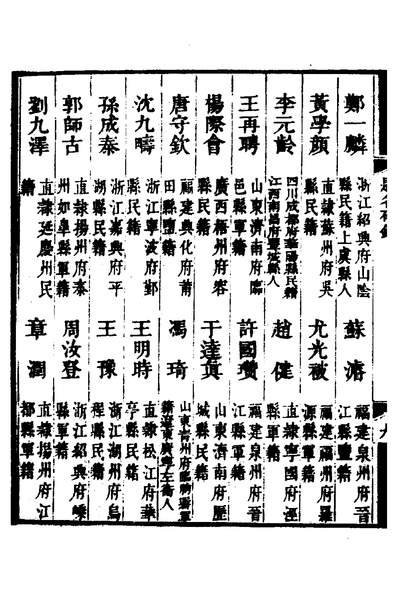 鄭一麟 浙江紹興府山陰縣民籍上虞縣人
蘇濬 福建泉州府晉江縣鹽籍
黃學顏 直隸蘇州府吳縣民籍
尤光被 福建福州府羅源縣軍籍
李元齡 四川成都府華陽縣民籍江西南昌府豐城縣人
趙健 直隸寧國府涇縣民籍
王再聘 山東濟南府臨邑縣民籍
許國瓚 福建泉州府晉江縣軍籍
楊際會 廣西梧州府容縣民籍
于達眞 山東濟南府歷城縣民籍
唐守欽 福建興化府莆田縣鹽籍
馮琦 山東青州府臨朐縣軍籍遼東廣寧左衛人
沈九疇 浙江寧波府鄞縣民籍
王明時 直隸松江府華亭縣民籍
孫成泰 浙江嘉興府平湖縣民籍
王豫 浙江湖州府烏程縣民籍
郭師古 直隸揚州府泰州如臯縣軍籍
周汝登 浙江紹興府嵊縣軍籍
劉九澤 直隸延慶州民籍
章潤 直隸揚州府江都縣軍籍